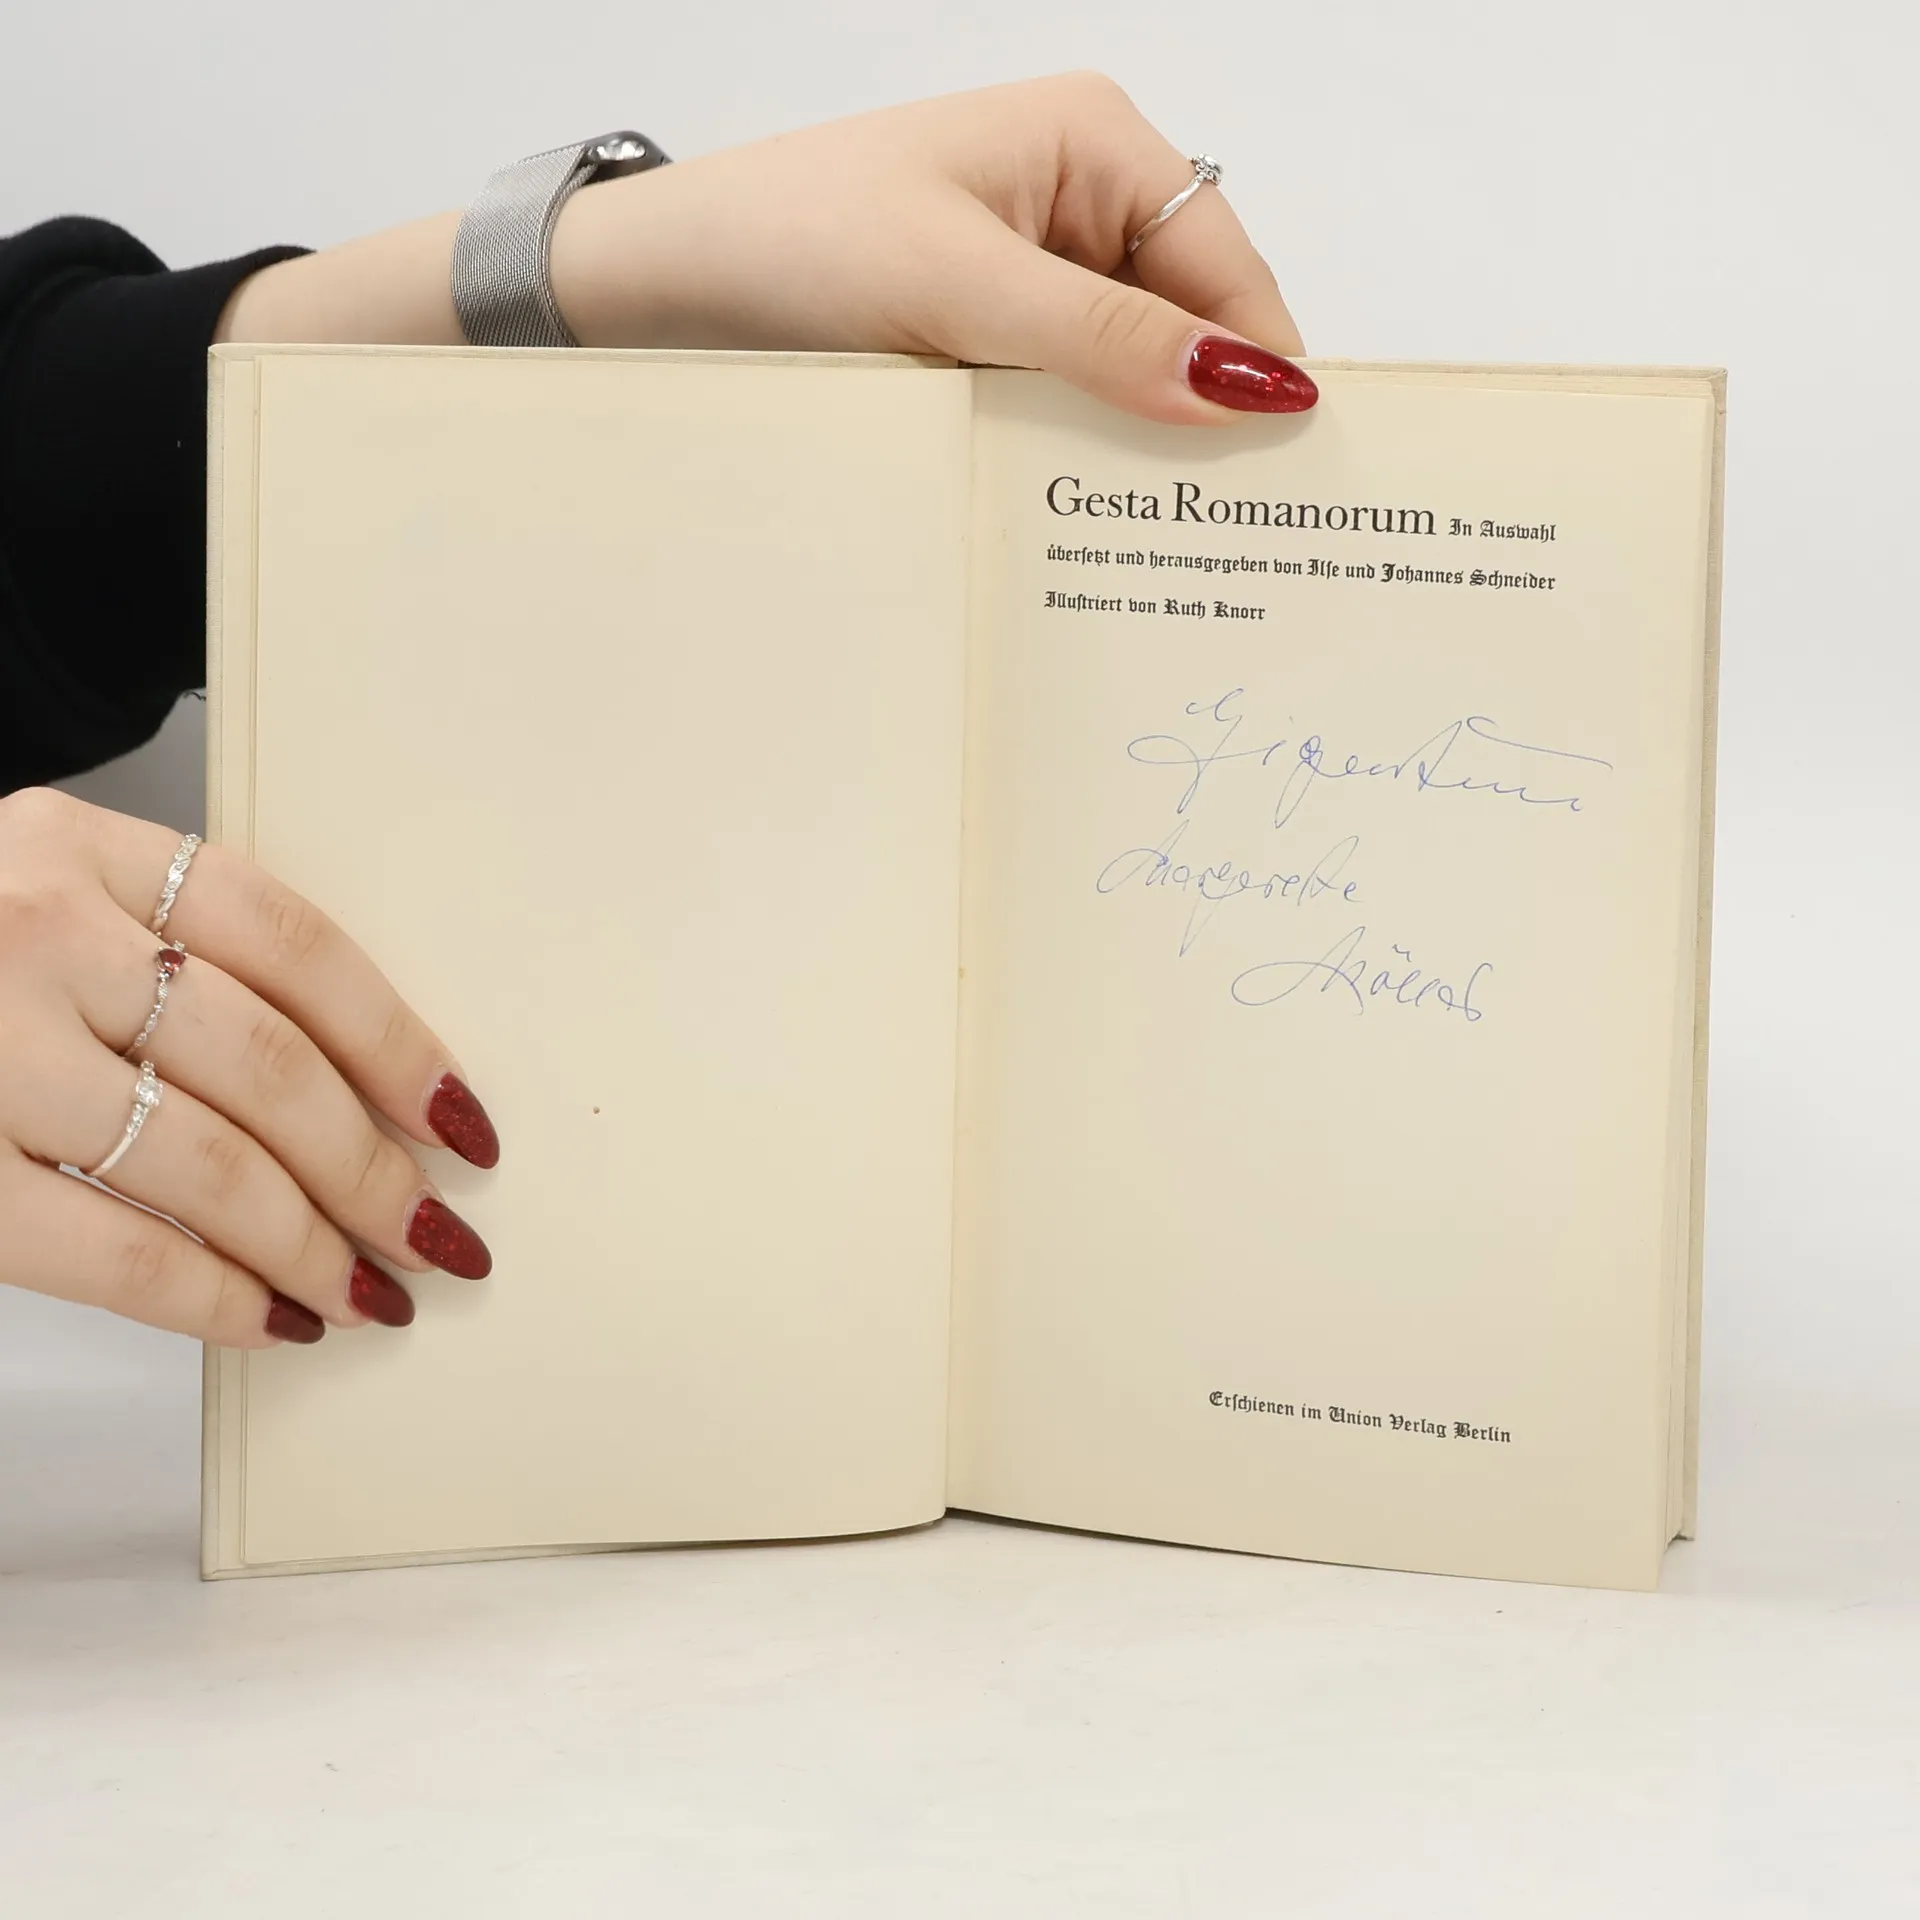 Gesta Romanorum In Auswahl
überſetzt und herausgegeben von Ilſe und Johannes Schneider
Illuſtriert von Ruth Knorr
Margarete
Erſchienen im Union Verlag Berlin